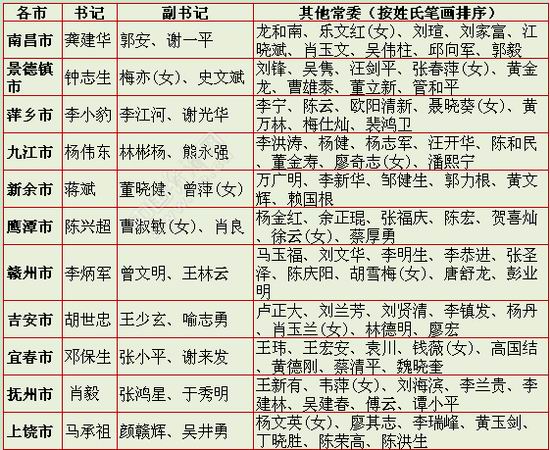 各市 书记 副书记 其他常委（按姓氏笔画排序）
南昌市 龚建华 郭安、谢一平 龙和南、乐文红(女)、刘瑄、刘家富、江
晓斌、肖玉文、吴伟柱、邱向军、郭毅
景德镇
市 钟志生 梅亦(女)、史文斌 刘锋、吴隽、汪剑平、张春萍(女)、黄金
龙、曹雄泰、董立新、管和平
萍乡市 李小豹 李江河、谢光华 李宁、陈云、欧阳清新、聂晓葵(女)、黄
万林、梅仕灿、裴鸿卫
九江市 杨伟东 林彬杨、熊永强 李洪涛、杨健、杨志军、汪开华、陈和民
、董金寿、廖奇志(女)、潘熙宁
新余市 蒋斌 董晓健、曾萍(女) 万广明、李新华、邹健生、郭力根、黄文
辉、赖国根
鹰潭市 陈兴超 曹淑敏(女)、肖良 杨金红、余正琨、张福庆、陈宏、贺喜灿
、徐云(女)、蔡厚勇
赣州市 李炳军 曾文明、王林云 马玉福、刘文华、李明生、李恭进、张圣
泽、陈庆阳、胡雪梅(女)、唐舒龙、彭业
明
吉安市 胡世忠 王少玄、喻志勇 卢正大、刘兰芳、刘贤清、李镇发、杨丹
、肖玉兰(女)、林德明、廖宏
宜春市 邓保生 张小平、谢来发 王玮、王宏安、袁川、钱薇(女)、高国结
、黄德刚、蔡清平、魏晓奎
抚州市 肖毅 张鸿星、于秀明 王新有、韦萍(女)、刘海滨、李兰贵、李
建林、吴建春、傅云、谭小平
上饶市 马承祖 颜赣辉、吴井勇 杨文英(女)、廖其志、李瑞峰、黄玉剑、
丁晓胜、陈荣高、陈洪生